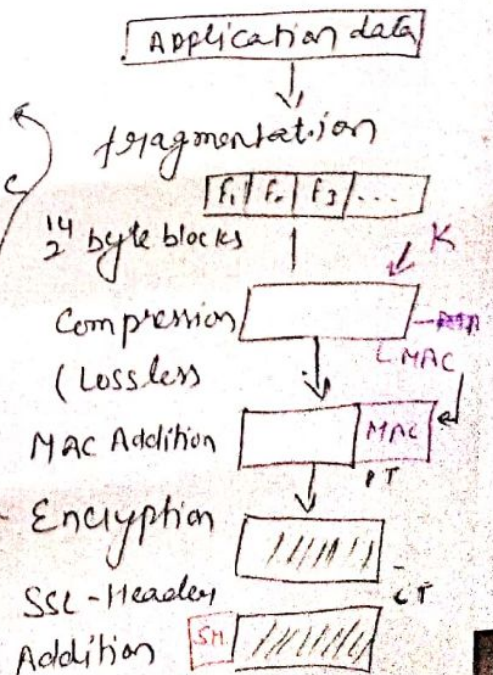 Application data
fragmentation
f1 f2 f3 ....
2^14 byte blocks
K
Compression
(Lossless
MAC
MAC Addition
MAC
PT
Encryption
CT
SSL-Header
Addition
SH